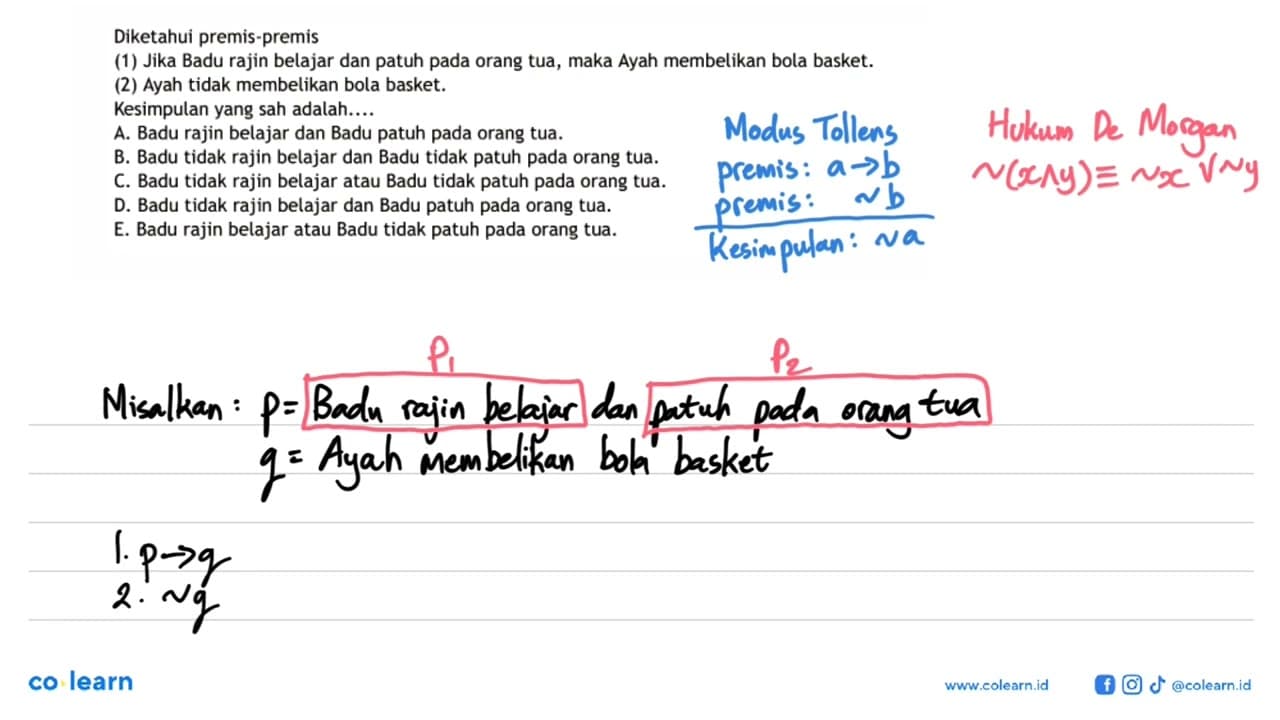 Diketahui premis-premis
(1) Jika Badu rajin belajar dan patuh pada orang tua, maka Ayah membelikan bola basket.
(2) Ayah tidak membelikan bola basket.
Kesimpulan yang sah adalah....
A. Badu rajin belajar dan Badu patuh pada orang tua.
B. Badu tidak rajin belajar dan Badu tidak patuh pada orang tua.
C. Badu tidak rajin belajar atau Badu tidak patuh pada orang tua.
D. Badu tidak rajin belajar dan Badu patuh pada orang tua.
E. Badu rajin belajar atau Badu tidak patuh pada orang tua.
Modus Tollens
premis: a→b
premis: ~b
Kesimpulan: ~a
Hukum De Morgan
~(x∧y)≡ ~x ∨~y
P₁
P₂
Misalkan: p= Badu rajin belajar dan patuh pada orang tua
q= Ayah membelikan bola basket
1. p→q
2. ~q
co learn
www.colearn.id
@colearn.id